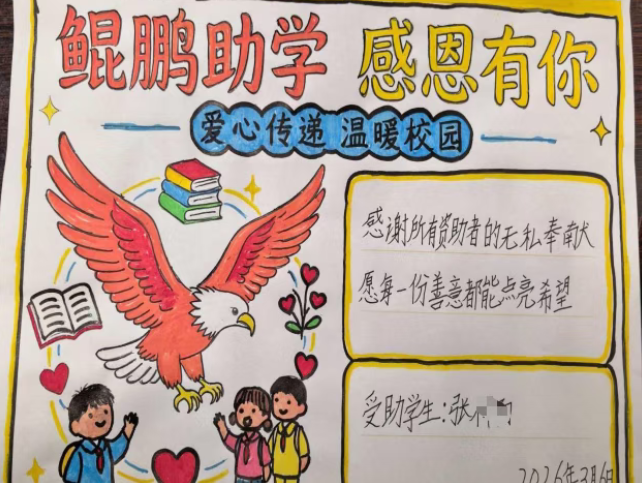 鲲鹏助学 感恩有你
爱心传递 温暖校园
感谢所有资助者的无私奉献
愿每一份善意都能点亮希望
受助学生:张
2026年3月6日